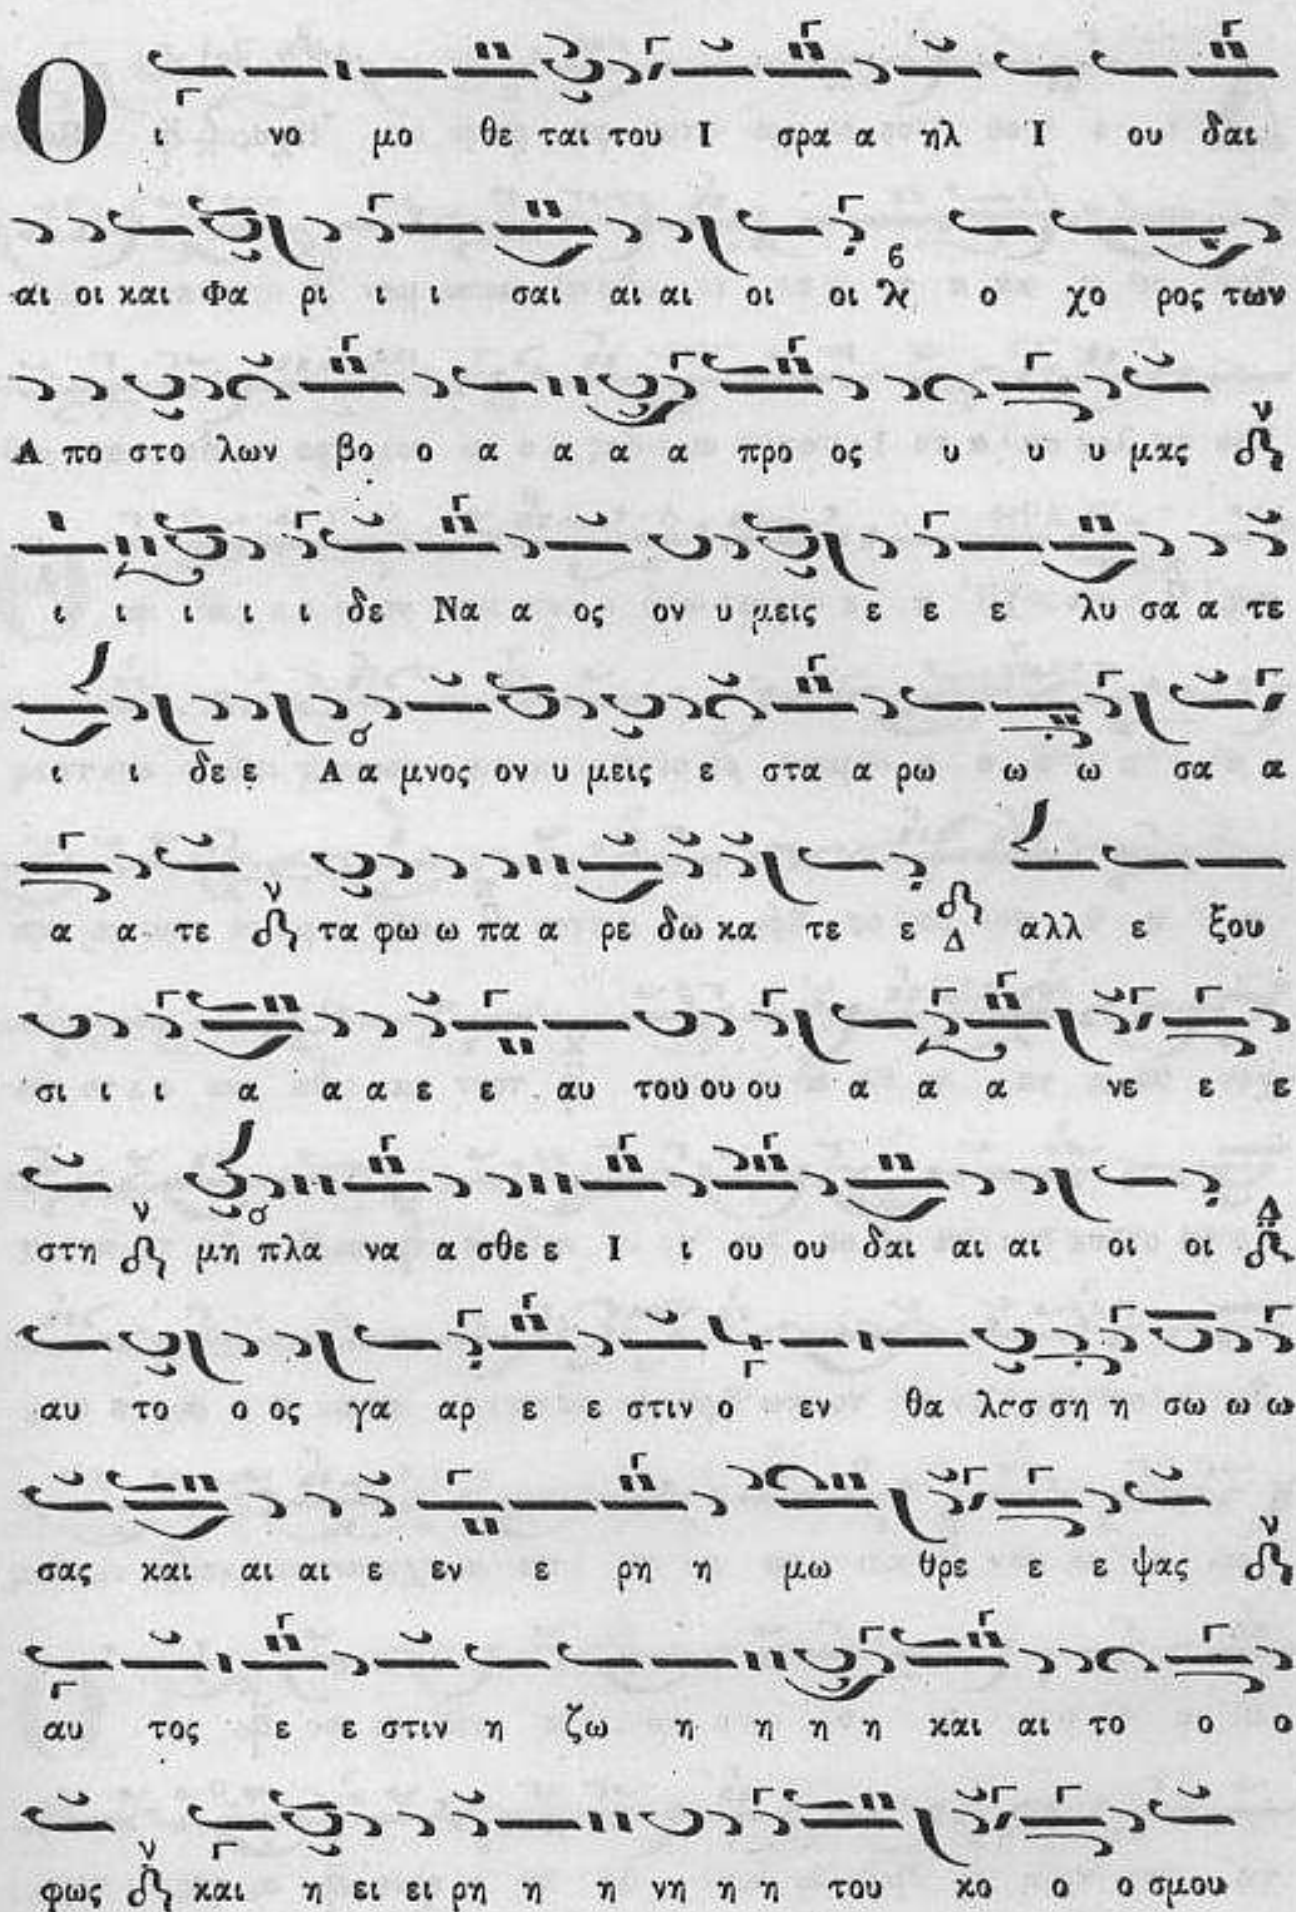 Ο ι νο μο θε ται του Ι σρα α ηλ Ι ου δαι
αι οι και Φα ρι ι ι σαι αι αι οι οι ο χο ρος των
Α πο στο λων βο ο α α α α προ ος υ υ υ μας ν
ι ι ι ι ι δε Να α ος ον υ μεις ε ε ε λυ σα α τε
ι ι δε ε Α α μνος ον υ μεις ε στα α ρω ω ω σα α
α α τε ν τα φω ω πα α ρε δω κα τε ε Δ αλλ ε ξου
σι ι ι α α α ε ε αυ του ου ου α α α νε ε ε
στη ν μη πλα να α σθε ε Ι ι ου ου δαι αι αι οι οι Δ
αυ το ο ος γα αρ ε ε στιν ο εν θα λασ ση η σω ω ω
σας και αι αι ε εν ε ρη η μω θρε ε ε ψας ν
αυ τος ε ε στιν η ζω η η η η και αι το ο ο
φως ν και η ει ει ρη η η νη η η του κο ο ο σμου